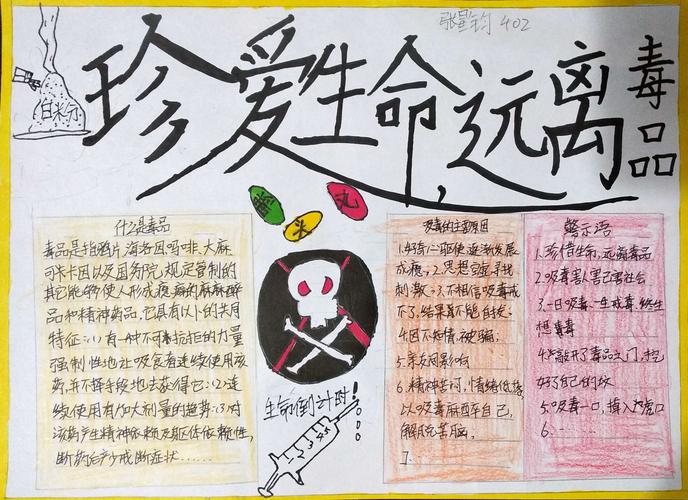 张星钧 402
珍爱生命,远离
毒品
白米分
摇头丸
什么是毒品
毒品是指鸦片、海洛因、吗啡、大麻
可卡因以及国务院规定管制的
其它能够使人形成瘾癖的麻醉
品和精神药品,它具有以下的共同
特征:(1)有一种不可抗拒的力量
强制性地让吸食者连续使用该
药,并不择手段地去获得它;(2)连
续使用有加大剂量的趋势;(3)对
该药产生精神依赖及躯体依赖性,
断药后产少戒断症状……
生命倒计时!
吸毒的主要原因
1.好奇心驱使逐渐发展
成瘾;2.思想空虚寻找
刺激;3.不相信吸毒戒
不了,结果真不能自拔;
4.因不知情,被骗;
5.亲友间影响
6.精神苦闷,情绪低落,
以吸毒麻醉自己,
解脱苦脑。
7.
警示语
1.珍惜生命,远离毒品
2.吸毒害人害己害社会
3.一日吸毒,一生戒毒,终生
想毒
4.敲开了毒品之门,挖
好了自己的坟
5.吸毒一口,掉入虎口
6.……